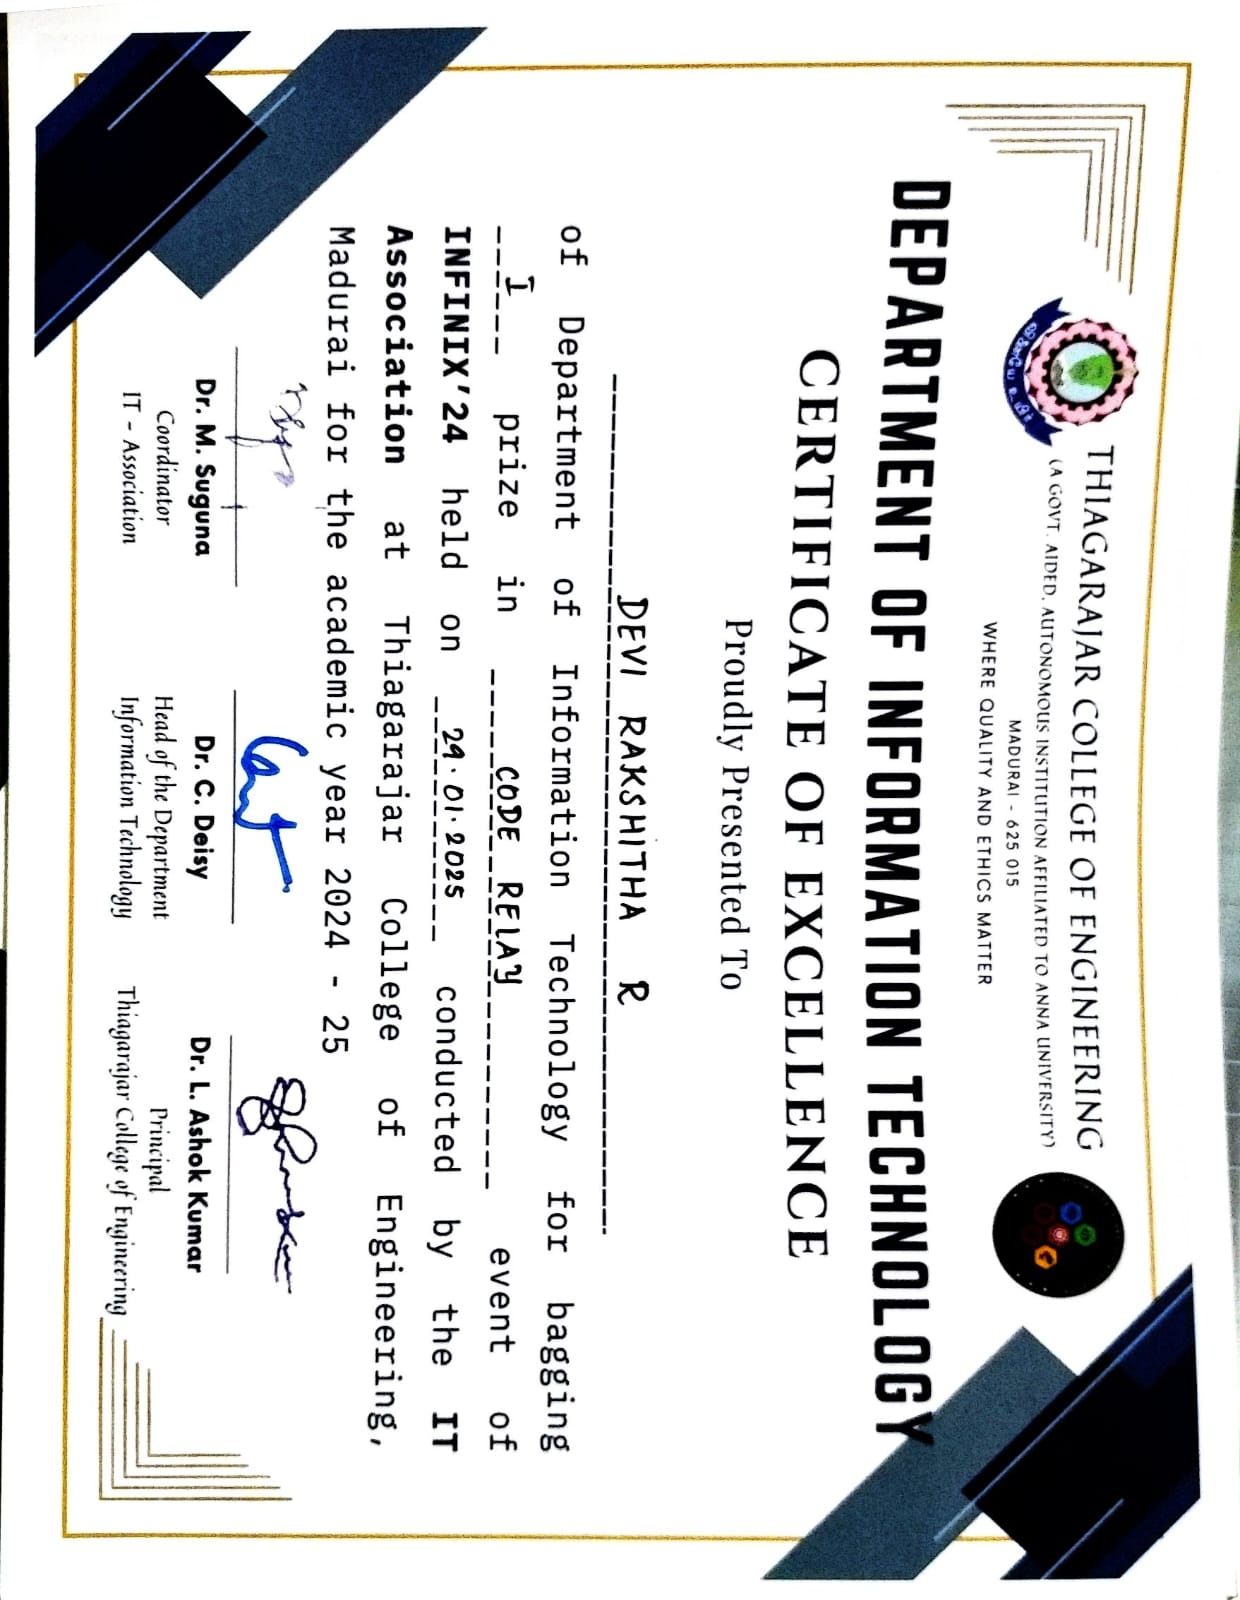 THIAGARAJAR COLLEGE OF ENGINEERING
(A GOVT. AIDED, AUTONOMOUS INSTITUTION AFFILIATED TO ANNA UNIVERSITY)
MADURAI - 625 015
WHERE QUALITY AND ETHICS MATTER
வினையே உயிர்
DEPARTMENT OF INFORMATION TECHNOLOGY
CERTIFICATE OF EXCELLENCE
Proudly Presented To
DEVI RAKSHITHA R
of Department of Information Technology for bagging
I prize in CODE RELAY event of
INFINIX'24 held on 29.01.2025 conducted by the IT
Association at Thiagarajar College of Engineering,
Madurai for the academic year 2024 - 25
Dr. M. Suguna
Coordinator
IT - Association
Dr. C. Deisy
Head of the Department
Information Technology
Dr. L. Ashok Kumar
Principal
Thiagarajar College of Engineering